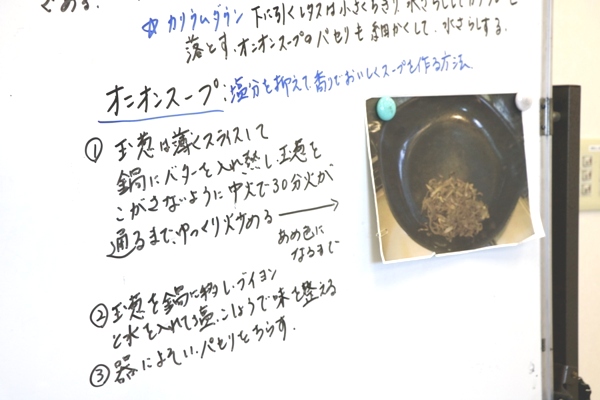 である.
☆ カリウムダウン 下に引くレタスは小さくちぎり水さらししてカリウムを
落とす.オニオンスープのパセリも細かくして、水さらしする.
オニオンスープ:塩分を抑えて香りでおいしくスープを作る方法
① 玉葱は薄くスライスして
鍋にバターを入れ熱し玉葱を
こがさないように中火で30分火が
通るまで、ゆっくり火炒める →
あめ色に
なるまで
② 玉葱を鍋に移し、ブイヨン
と水を入れて塩、こしょうで味を整える
③ 器によそい、パセリをちらす.